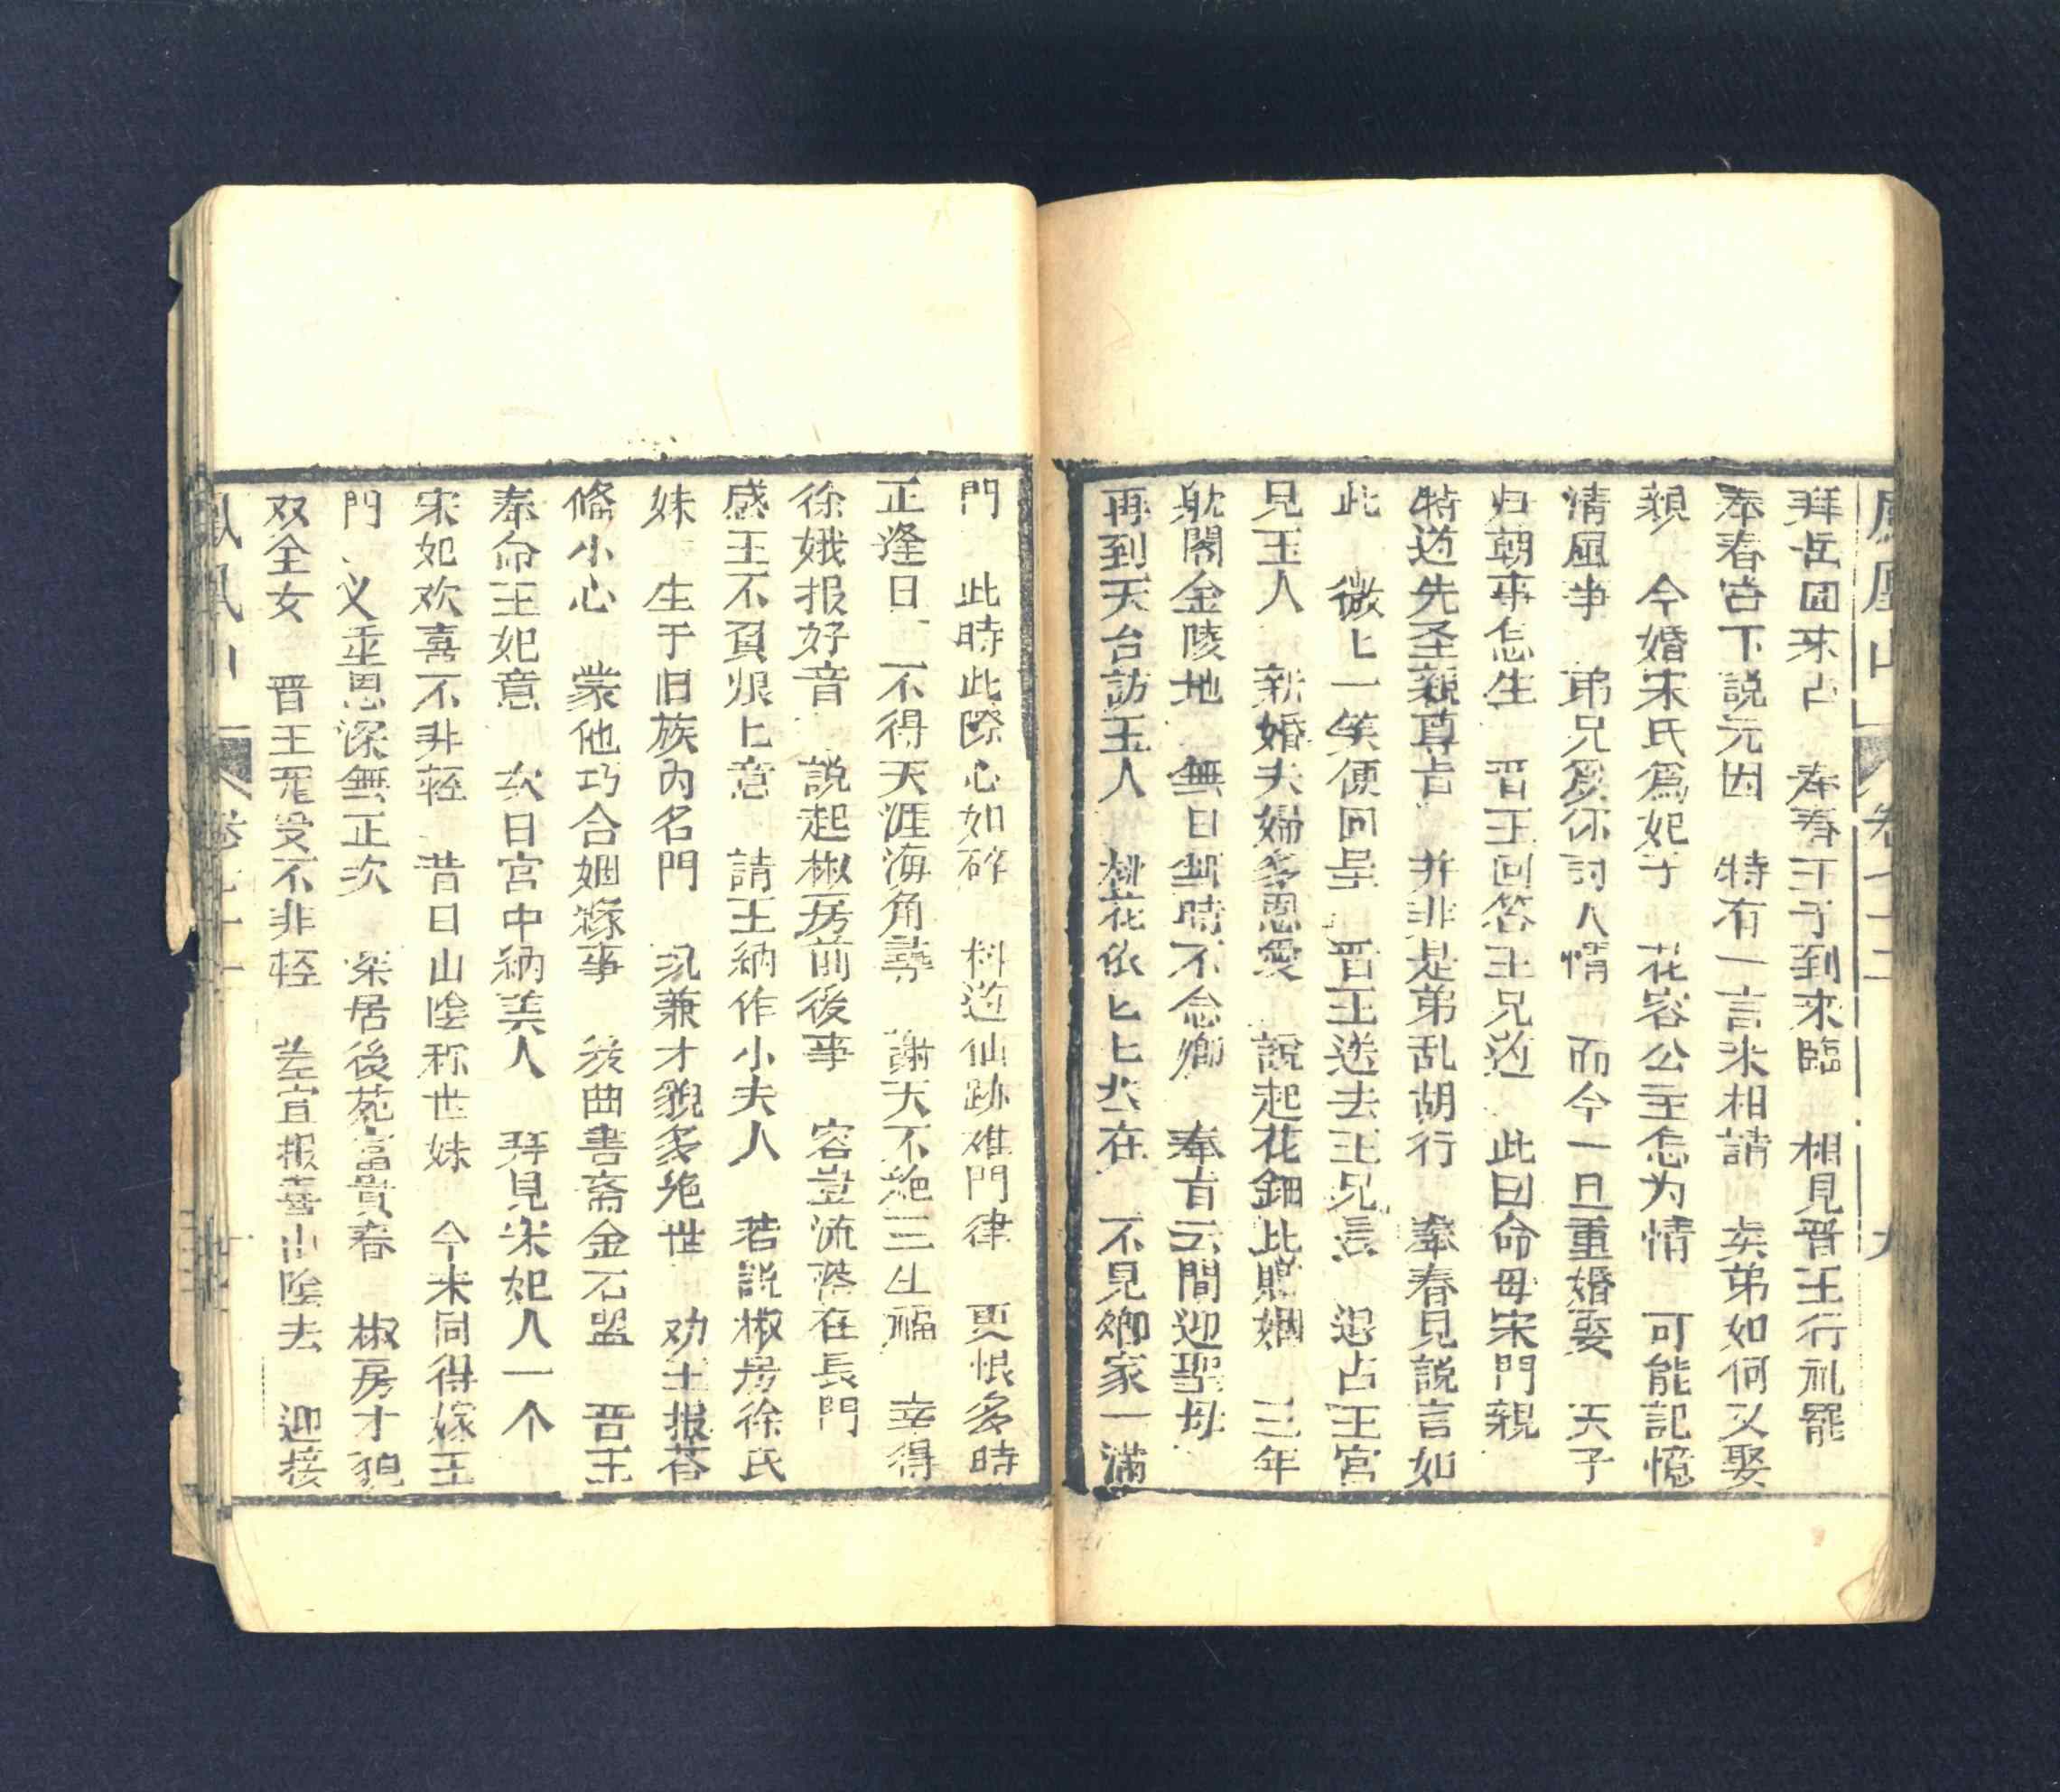 鳳凰山 卷七十二 九
拜岳回來占 奉春王子到來臨 相見晋王行礼罷
奉春宮下説元因 特有一言来相請 矣弟如何又娶
親 今婚宋氏爲妃子 花容公主怎为情 可能記憶
清風事 弟兄爲你討人情 而今一旦重婚娶 天子
归朝事怎生 晋王回答王兄道 此曰命母宋門親
特道先圣親尊旨 并非是弟乱胡行 奉春見説言如
此 微匕一笑便回呈 晋王送去王兄長 退占王宮
兄玉人 新婚夫婦多恩愛 說起花鈿比贈姻 三年
耽閣金陵地 無日無時不念鄉 奉旨云間迎聖母
再到天台訪玉人 桃花依匕匕在 不見鄉家一滿
門 此時此際心如碎 料道仙跡难門律 更恨多時
正逢日 不得天涯海角尋 謝天不絶三生福 幸得
徐娥报好音 説起椒房前後事 容豈流落在長門
感王不負恨匕意 請王納作小夫人 若説椒房徐氏
妹 生于旧族为名門 况兼才貌多絶世 劝王报荅
條小心 蒙他巧合姻縁事 後曲書斋金石盟 晋王
奉命王妃意 次日宮中納美人 拜見宋妃人一个
宋妃欢喜不非輕 昔日山陰称世妹 今来同得嫁王
門 义重恩深無正次 深居後苑富貴春 椒房才貌
双全女 晋王寵受不非輕 差官报喜山陰去 迎接
鳳凰山 卷七十二